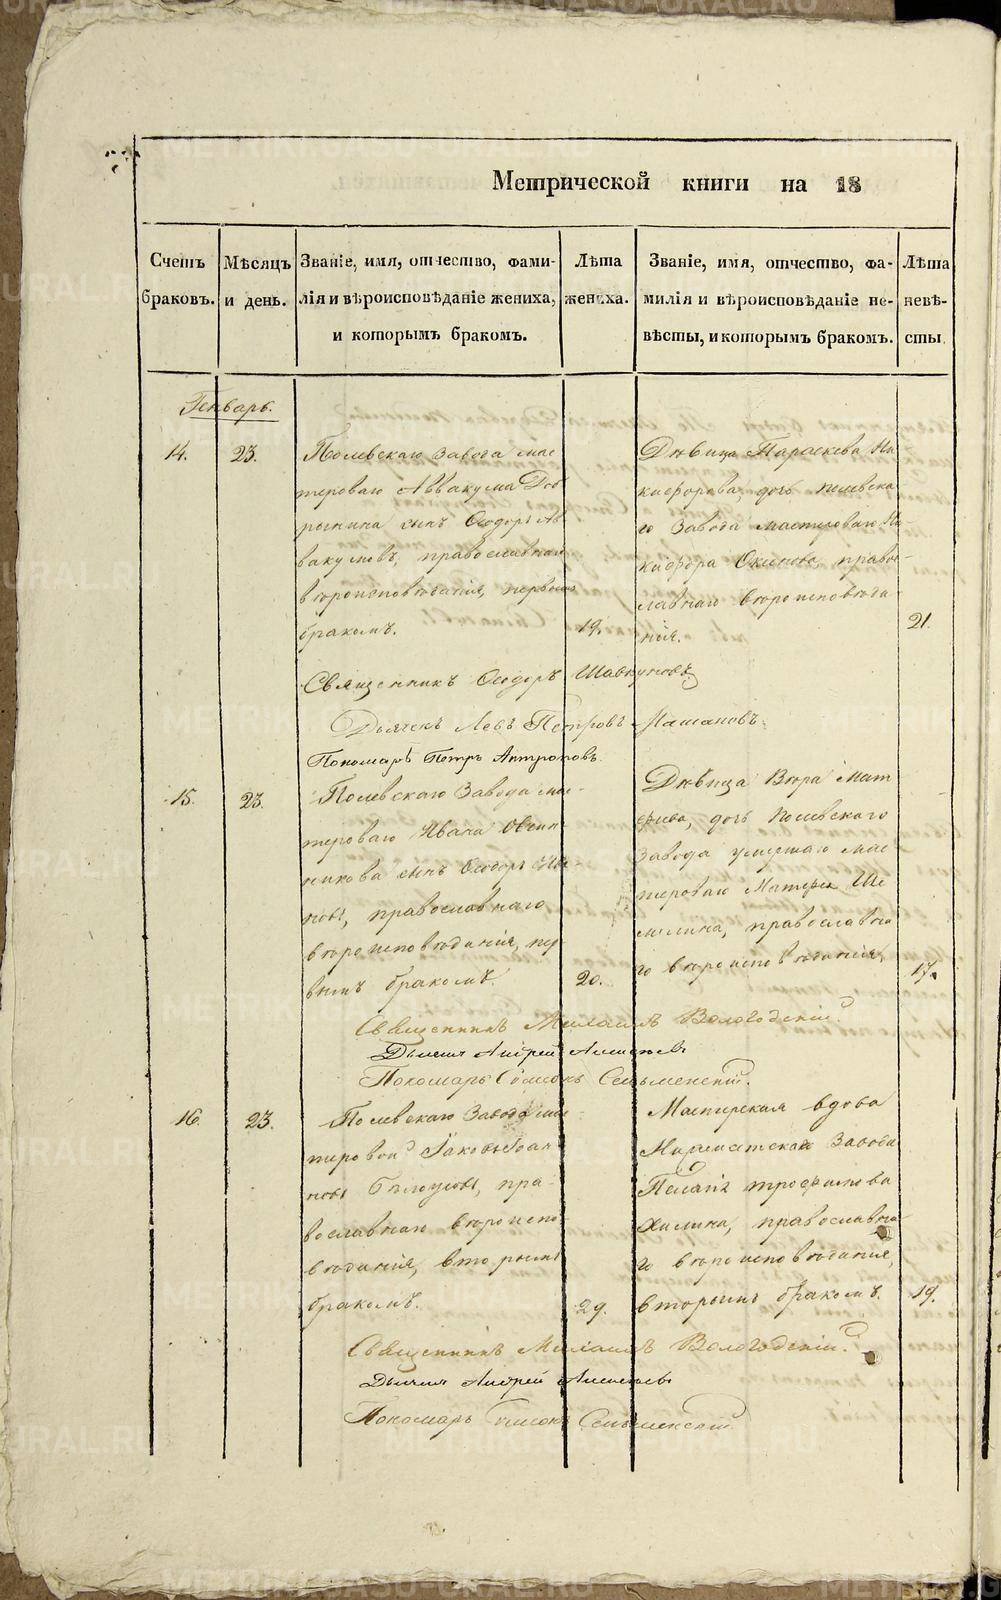 Метрической книги на 18
Счетъ браковъ.
Мѣсяцъ и день.
Званіе, имя, отчество, фами-
лія и вѣроисповѣданіе жениха,
и которымъ бракомъ.
Лѣта жениха.
Званіе, имя, отчество, фа-
милія и вѣроисповѣданіе не-
вѣсты, и которымъ бракомъ.
Лѣта невѣ-
сты
Генварь.
14.
23.
Полевскаго Завода мас
тероваго Аввакума
сынъ Ѳеодоръ Ав
вакумовъ, православнаго
вѣроисповѣданія, первымъ
бракомъ.
19.
Дѣвица Параскева Ни
кифорова, дочь Полевска
го Завода мастероваго Ни
кифора правос
лавнаго вѣроисповѣда
нія.
21.
Священникъ Ѳеодоръ Шавкуновъ
Дьячекъ Левъ Петровъ Машановъ.
Пономарь Петръ Антроповъ.
15.
23.
Полевскаго Завода мас-
тероваго Ивана Овчин
никова сынъ Ѳеодоръ Ива-
новъ, православнаго
вѣроисповѣданія, пер
вымъ бракомъ.
20.
Дѣвица Вѣра Мат
фиева, дочь Полевскаго
Завода умершаго мас
тероваго Матфея Ше
мелина, православна
го вѣроисповѣданія,
17.
Священникъ Михаилъ Вологодскій.
Дьячекъ Андрей
Пономарь Симонъ
16.
23.
Полевскаго Завода мас-
теровой Іаковъ
новъ Белоусовъ, пра-
вославнаго вѣроиспо
вѣданія, вторымъ
бракомъ.
29.
Мастерская вдова
Завода
Трофимова
православна-
го вѣроисповѣданія,
вторымъ бракомъ.
19.
Священникъ Михаилъ Вологодскій.
Дьячекъ Андрей
Пономарь Симонъ
METRIKI.GASO-URAL.RU